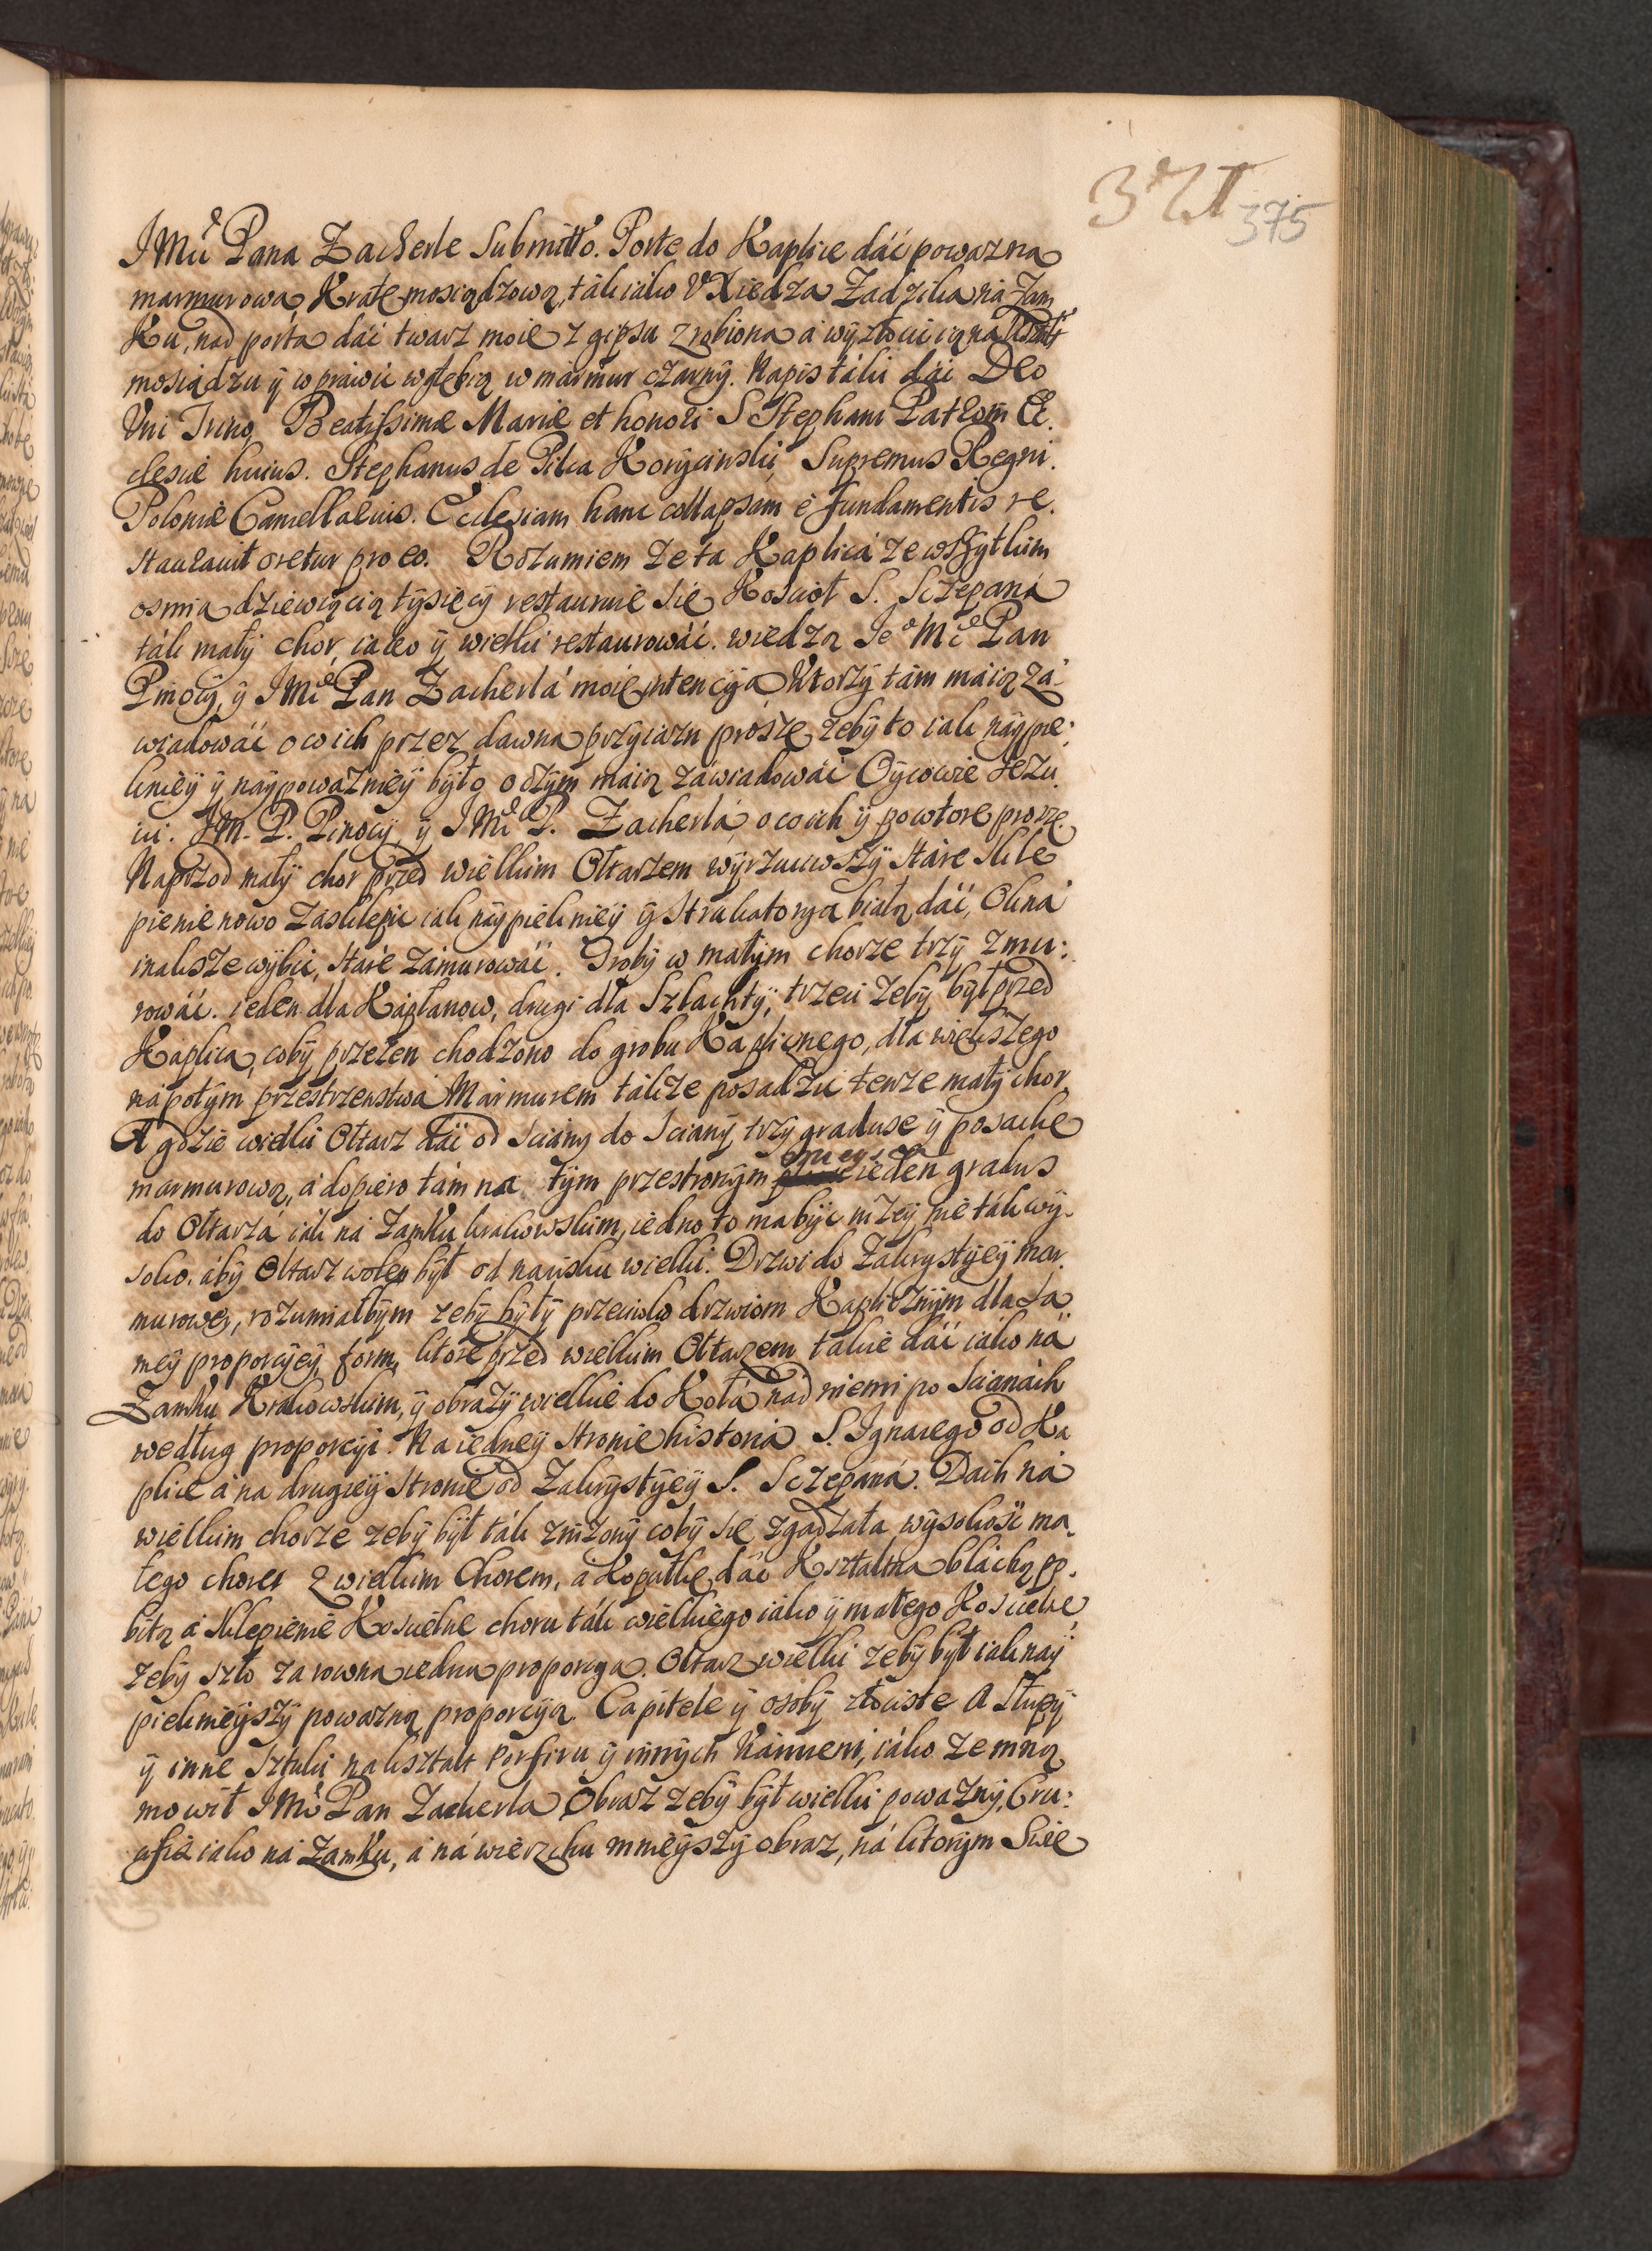 371
375
JMći Pana Zacherle Submitto. Porte do Kaplice dać powazna
marmurowa, Krate mosiądzową, ták iako V Xiedza Zadzika ná Zam
Ku, nad porta dać twarz moie z gipsu zrobiona á wyzłocic ią na kształt
mosiądzu ÿ wprawić wgłębią w mármur czarnÿ. Napis táki dái Deo
Vni Trino, Beatissimæ Mariæ et honori S Stephani Patroni Ec.
clesiæ huius. Stephanus de Pilca Korÿcinskii, Supremus Regni.
Poloniæ Cancellarius. Ecclesiam hanc collapsam è fundamentis re.
stauravit oretur pro eo. Rozumiem ze ta Kaplicá ze wszÿtkim
osmia dziewiącią tÿsięcÿ restauruie się Kosciół S. Sczepaná
ták małÿ chor, iako ÿ wielki restaurowáć. wiedzą Je° Mć Pan
Pinocÿ, ÿ JMć Pan Zacherlá moię intencÿą Ktorzÿ tám máią zá
wiadowáć o co ich przez dawna przÿiazn proszę, zebÿ to iak nayþie:
kniéÿ ÿ náÿpowazniéÿ bÿło o czÿm máią záwiadowáć Oÿcowie Jezu
ici. JM. P. Pinocÿ, ÿ JMć P. Zácherlá, o co ich ÿ powtore proszę.
Naprzod małÿ chor przed wielkim Ołtarzem wÿrzuciwszÿ stáre skle
pienie nowo zásklepic iak náÿpiekniéÿ ÿ strukatorÿą białą dáć, Okná
inaksze wÿbić, stáre zámurowáć. Grobÿ w máłÿm chorze trzÿ zmu:
rowáć. ieden dla Kápłanow, drugi dla Szlachtÿ, trzeci zebÿ bÿł przed
Kaplica, cobÿ przezen chodzono do grobu Kaplicznego, dla wiekszego
nápotÿm przestrzenstwá Mármurem tákze posadzić tenze małÿ chor,
A gdzie wielki Ołtarz dái od sciánÿ do scianÿ, trzÿ graduse ÿ posadke
marmurową, á dopiero tám na tÿm przestronÿm mieÿscu ieden gradus
do Ołtarzá iák ná Zamku krakowskim, iedno to ma bÿć nizeÿ nie ták wÿ.
soko. ábÿ Ołtarz wolen bÿł od nacisku wielki. Drzwi do Zakrÿstÿeÿ mar.
murowe, rozumiałbÿm zebÿ bÿłÿ przeciwko drzwiom Kaplicznÿm dla sa
meÿ proporcÿeÿ, form, ktore przed wielkim Ołtarzem takie dáć iáko ná
Zamku Krakowskim, ÿ obrazÿ wielkie do Kołá nád niemi po scianách
według proporcÿi. Na iedneÿ stronie historia S. Ignacego od Ka
plice á na drugieÿ stronie od Zakrÿstÿeÿ S. Sczepaná. Dach ná
wielkim chorze zebÿ bÿł ták znizonÿ cobÿ się zgadzała wÿsokość ma.
łego choru z wielkim Chorem, á Kopułkę dáć Kształtna bláchą po.
bitą á sklepienie Koscielne choru ták wielkiego iáko ÿ małego Koscielne
zebÿ szło za rowna iedna proporcÿa. Ołtarz wielki zebÿ bÿł iak naÿ
piekniéÿszÿ powazną proporcÿą. Capitele ÿ osobÿ złociste A słupÿ
ÿ inne sztuki na kształt Porfiru ÿ innÿch Kámieni, iáko ze mną
mowił JMć Pan Zacherla Obraz zebÿ bÿł wielki powaznÿ, Cru:
cifix iako ná Zamku, á ná wierzchu mnieÿszÿ obraz, ná ktorÿm Swie